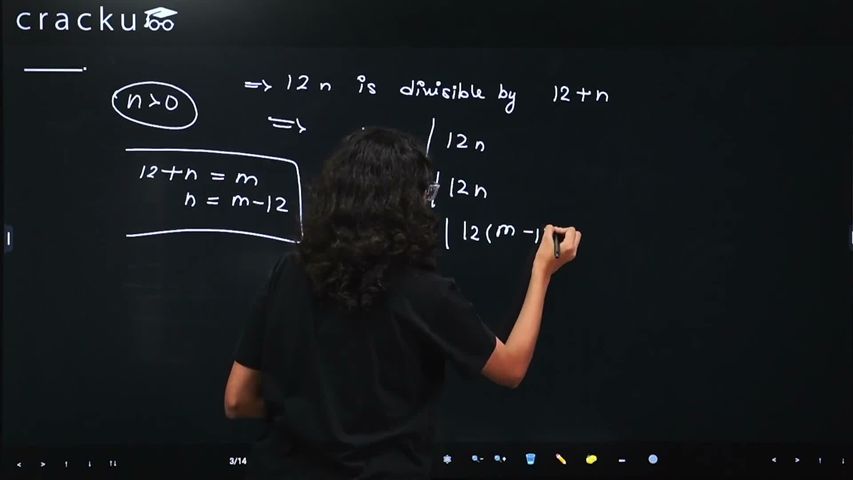 cracku
n>0
=> 12 n is divisible by 12+n
=>
| 12 n
12+n = m
n = m-12
| 12 n
| 12(m-1
3/14